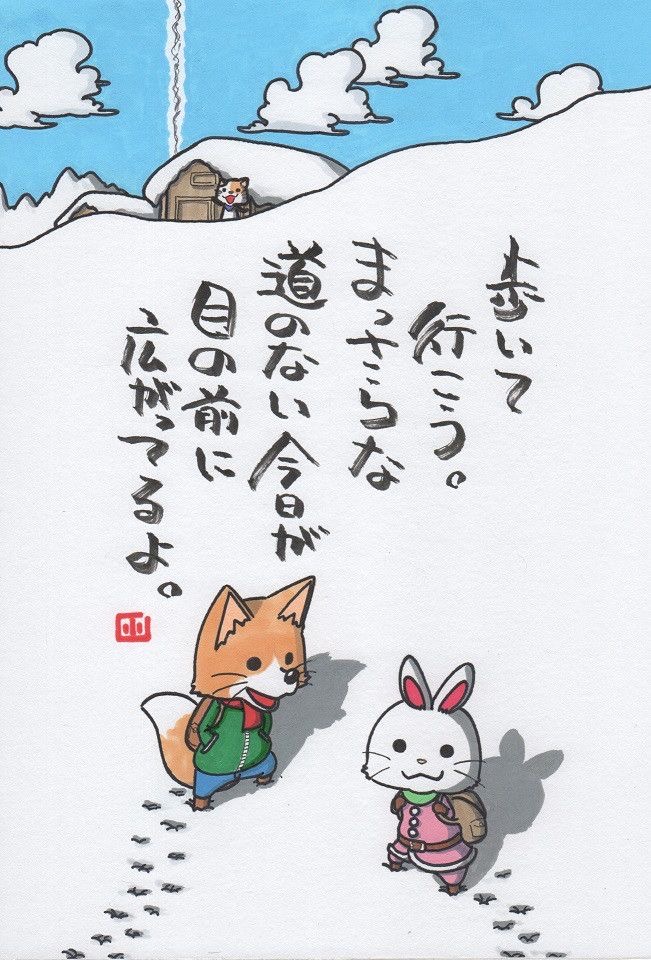 歩いて
行こう。
まっさらな
道のない今日が
目の前に
広がってるよ。